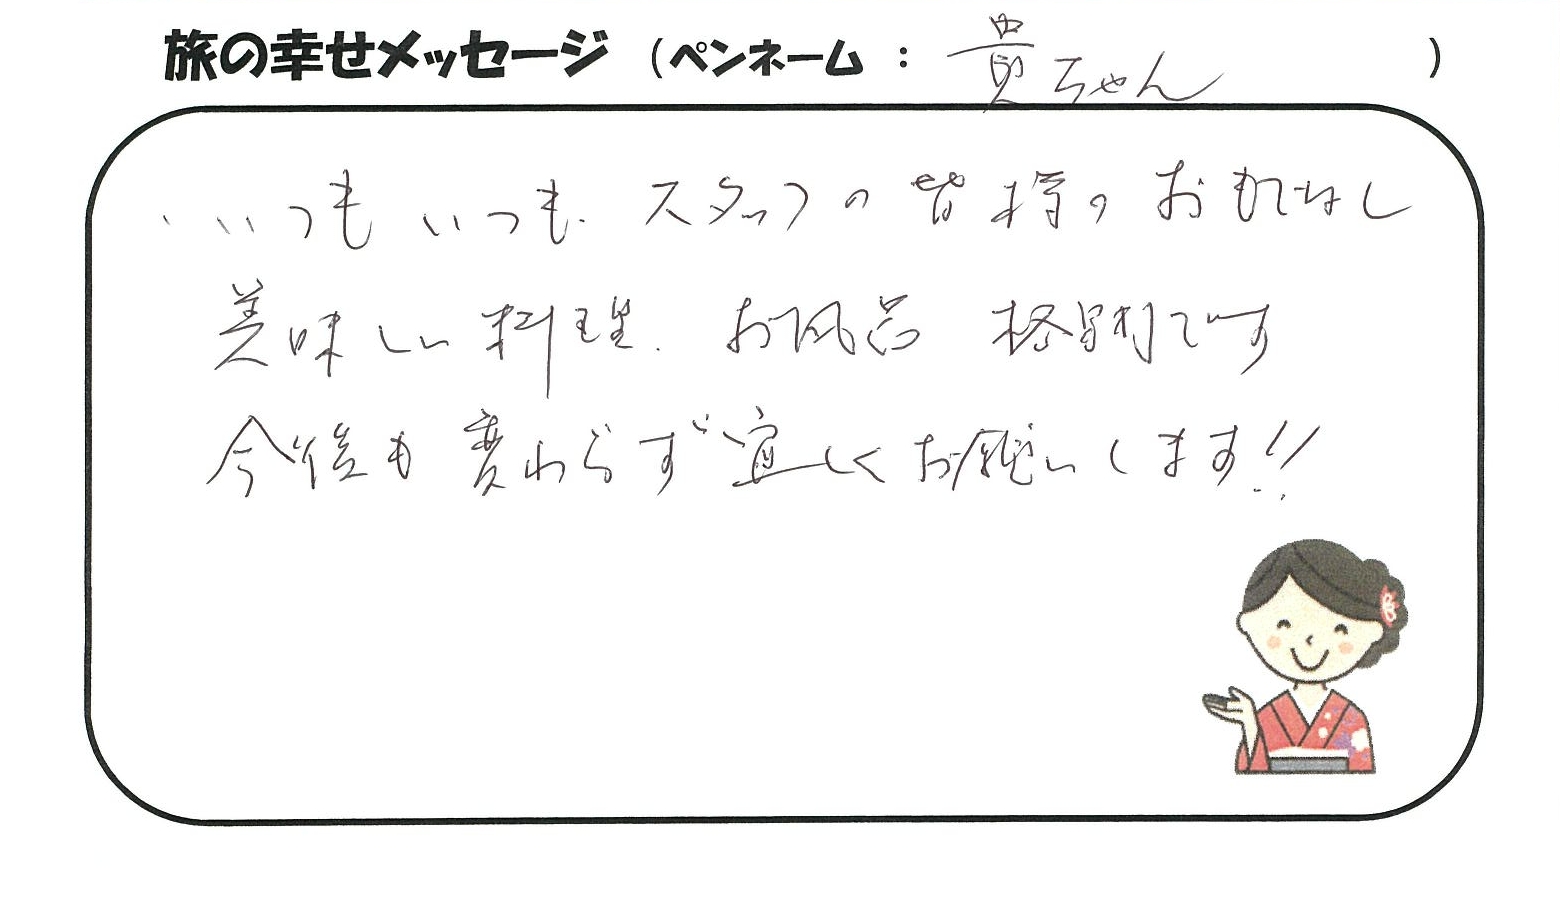 旅の幸せメッセージ (ペンネーム : 貴ちゃん )
いつもいつも、スタッフの皆様のおもてなし
美味しい料理、お風呂 格別です
今後も変わらず宜しくお願いします!!